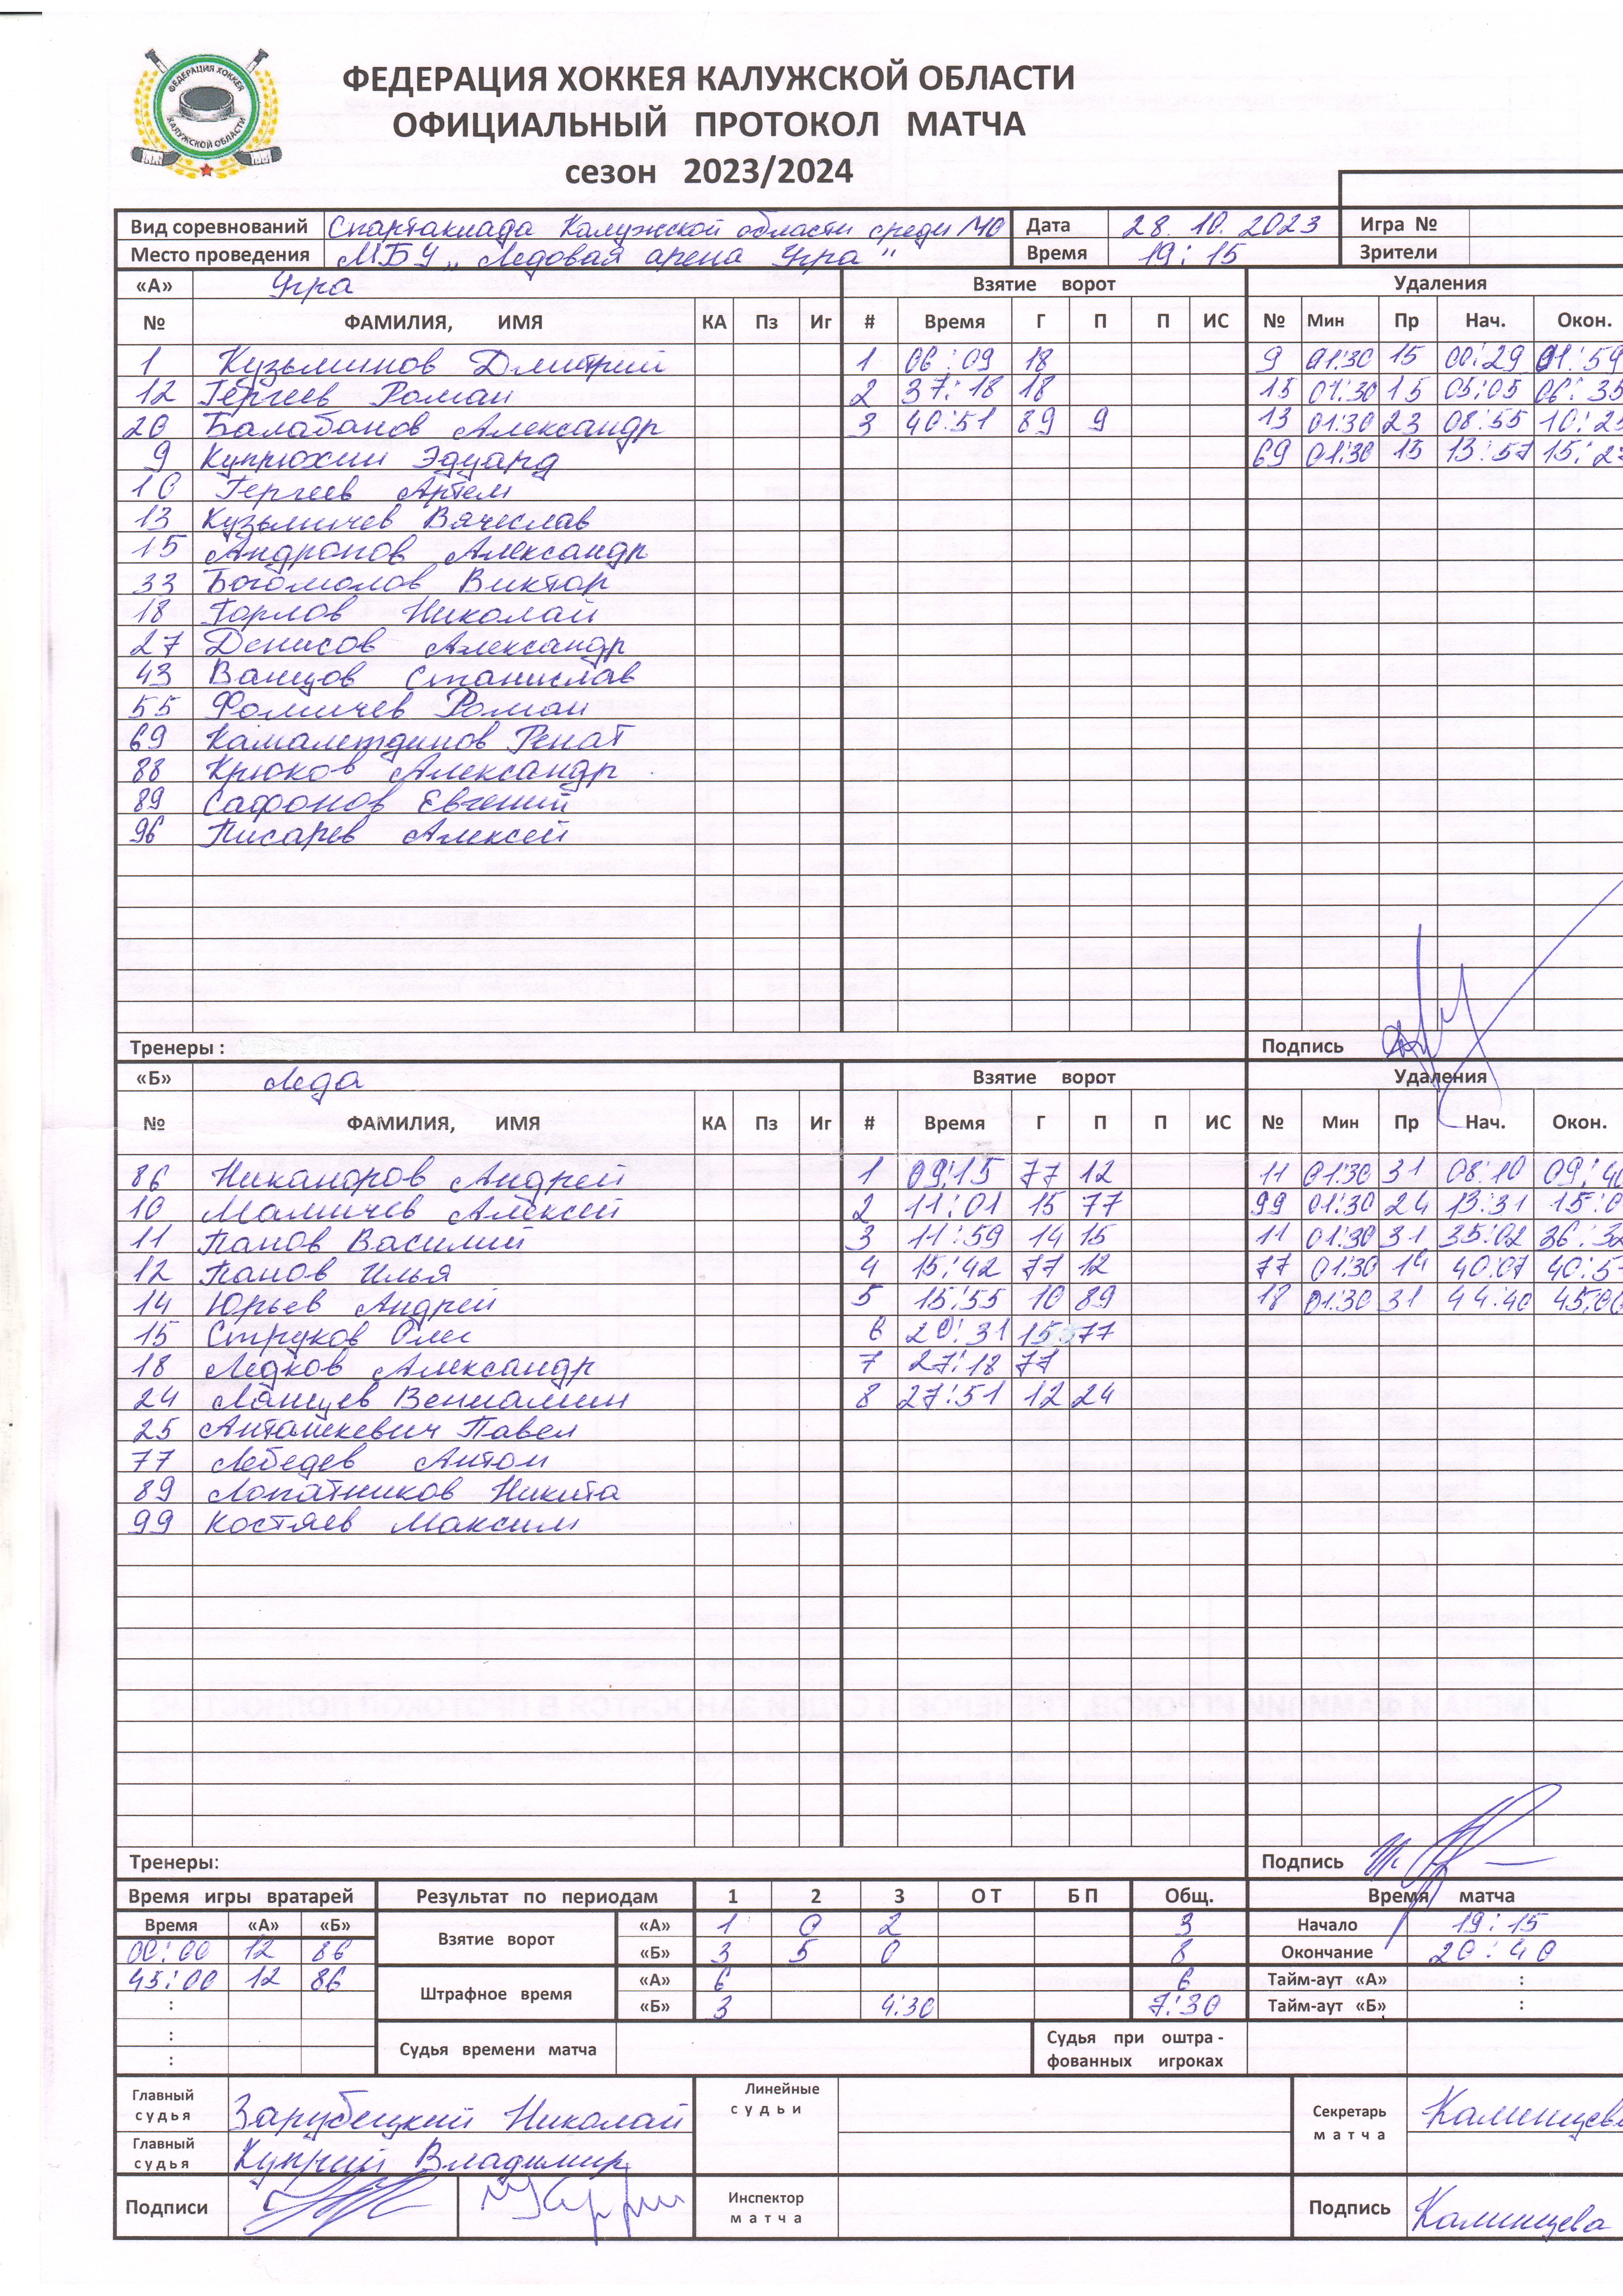 ФЕДЕРАЦИЯ ХОККЕЯ КАЛУЖСКОЙ ОБЛАСТИ
ФЕДЕРАЦИЯ ХОККЕЯ КАЛУЖСКОЙ ОБЛАСТИ
ОФИЦИАЛЬНЫЙ ПРОТОКОЛ МАТЧА
сезон 2023/2024
Вид соревнований Спартакиада Калужской области среди МО Дата 28. 10. 2023 Игра №
Место проведения МБУ „Ледовая арена Угра" Время 19:15 Зрители
«А» Угра Взятие ворот Удаления
№ ФАМИЛИЯ, ИМЯ КА Пз Иг # Время Г П П ИС № Мин Пр Нач. Окон.
1 Кузьминов Дмитрий 1 06:09 18 9 01:30 15 00:29 01:59
12 Гергеев Роман 2 37:18 18 15 01:30 15 05:05 06:35
20 Балабанов Александр 3 40:51 89 9 13 01:30 23 08:55 10:25
9 Купрюхин Эдуард 69 01:30 15 13:57 15:2
10 Гергеев Артем
13 Кузьмичев Вячеслав
15 Андропов Александр
33 Богомолов Виктор
18 Горлов Николай
27 Денисов Александр
43 Ванцов Станислав
55 Фомичев Роман
69 Камалетдинов Ренат
88 Крюков Александр
89 Сафонов Евгений
96 Писарев Алексей
Тренеры : Подпись
«Б» Леда Взятие ворот Удаления
№ ФАМИЛИЯ, ИМЯ КА Пз Иг # Время Г П П ИС № Мин Пр Нач. Окон.
86 Никаноров Андрей 1 09:15 77 12 11 01:30 31 08:10 09:40
10 Мамичев Алексей 2 11:01 15 77 99 01:30 24 13:31 15:0
11 Панов Василий 3 11:59 14 15 11 01:30 31 35:02 36:32
12 Панов Илья 4 15:42 77 12 77 01:30 14 40:07 40:5
14 Юрьев Андрей 5 15:55 10 89 18 01:30 31 44:40 45:00
15 Струков Олег 6 20:31 15 77
18 Ледков Александр 7 27:18 77
24 Ланцев Вениамин 8 27:51 12 24
25 Анташкевич Павел
77 Лебедев Антон
89 Лопатников Никита
99 Костяев Максим
Тренеры: Подпись
Время игры вратарей Результат по периодам 1 2 3 ОТ БП Общ. Время матча
Время «А» «Б» Взятие ворот «А» 1 0 2 3 Начало 19:15
00:00 12 86 «Б» 3 5 0 8 Окончание 20:40
45:00 12 86 Штрафное время «А» 6 6 Тайм-аут «А» :
: «Б» 3 4:30 7:30 Тайм-аут «Б» :
: Судья времени матча Судья при оштра-
: фованных игроках
Главный судья Зарубецкий Николай Линейные судьи Секретарь матча Калинцева
Главный судья Куприй Владимир
Подписи Инспектор матча Подпись Калинцева